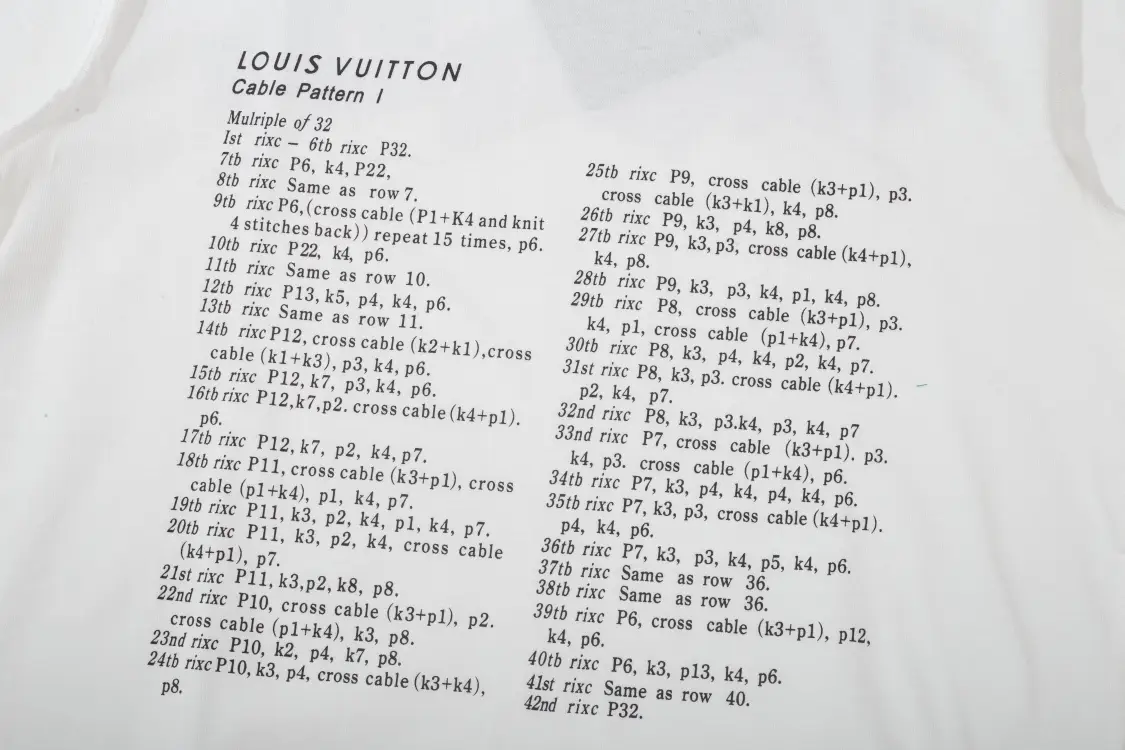 LOUIS VUITTON
Cable Pattern I
Mulriple of 32
Ist rixc – 6tb rixc P32.
7tb rixc P6, k4, P22,
8tb rixc Same as row 7.
9tb rixc P6,(cross cable (P1+K4 and knit
4 stitches back)) repeat 15 times, p6.
10tb rixc P22, k4, p6.
11tb rixc Same as row 10.
12tb rixc P13, k5, p4, k4, p6.
13tb rixc Same as row 11.
14tb rixc P12, cross cable (k2+k1),cross
cable (k1+k3), p3, k4, p6.
15tb rixc P12, k7, p3, k4, p6.
16tb rixc P12,k7,p2. cross cable (k4+p1).
p6.
17tb rixc P12, k7, p2, k4, p7.
18tb rixc P11, cross cable (k3+p1), cross
cable (p1+k4), p1, k4, p7.
19tb rixc P11, k3, p2, k4, p1, k4, p7.
20tb rixc P11, k3, p2, k4, cross cable
(k4+p1), p7.
21st rixc P11, k3,p2, k8, p8.
22nd rixc P10, cross cable (k3+p1), p2.
cross cable (p1+k4), k3, p8.
23nd rixc P10, k2, p4, k7, p8.
24tb rixc P10, k3, p4, cross cable (k3+k4),
p8.
25tb rixc P9, cross cable (k3+p1), p3.
cross cable (k3+k1), k4, p8.
26tb rixc P9, k3, p4, k8, p8.
27tb rixc P9, k3, p3, cross cable (k4+p1),
k4, p8.
28tb rixc P9, k3, p3, k4, p1, k4, p8.
29tb rixc P8, cross cable (k3+p1), p3.
k4, p1, cross cable (p1+k4), p7.
30tb rixc P8, k3, p4, k4, p2, k4, p7.
31st rixc P8, k3, p3. cross cable (k4+p1).
p2, k4, p7.
32nd rixc P8, k3, p3.k4, p3, k4, p7
33nd rixc P7, cross cable (k3+p1). p3.
k4, p3. cross cable (p1+k4), p6.
34tb rixc P7, k3, p4, k4, p4, k4, p6.
35tb rixc P7, k3, p3, cross cable (k4+p1).
p4, k4, p6.
36tb rixc P7, k3, p3, k4, p5, k4, p6.
37tb rixc Same as row 36.
38tb rixc Same as row 36.
39tb rixc P6, cross cable (k3+p1), p12,
k4, p6.
40tb rixc P6, k3, p13, k4, p6.
41st rixc Same as row 40.
42nd rixc P32.